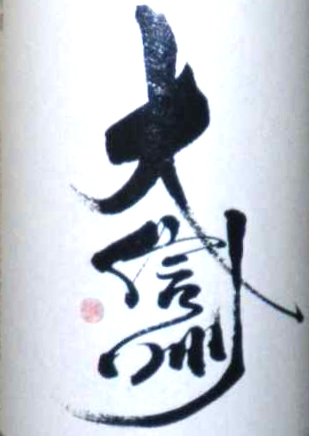 大信州